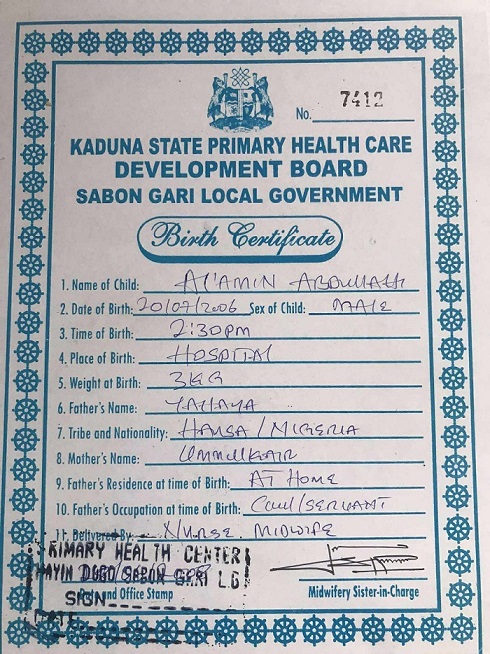 No. 7412
KADUNA STATE PRIMARY HEALTH CARE
DEVELOPMENT BOARD
SABON GARI LOCAL GOVERNMENT
Birth Certificate
1. Name of Child: Al'AMIN ABDULLAHI
2. Date of Birth: 20/07/2006 Sex of Child: MALE
3. Time of Birth: 2:30PM
4. Place of Birth: HOSPITAL
5. Weight at Birth: 3KG
6. Father's Name: YAHAYA
7. Tribe and Nationality: HAUSA / NIGERIA
8. Mother's Name: UMMULKAIR
9. Father's Residence at time of Birth: AT HOME
10. Father's Occupation at time of Birth: CIVIL/SERVANT
11. Delivered By: NURSE MIDWIFE
RIMARY HEALTH CENTER
HAYIN DOGO SABON GARI LG
SIGN
and Office Stamp
Midwifery Sister-in-Charge